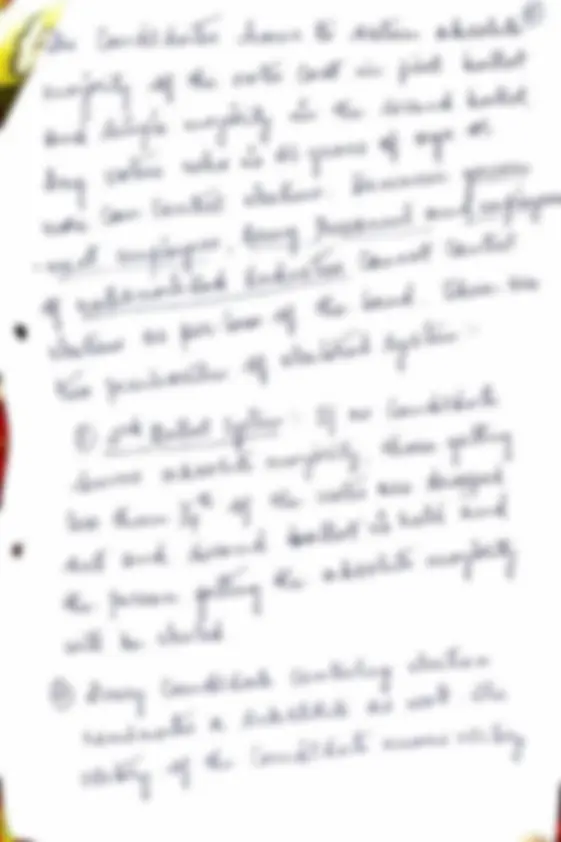 The Candidates have to obtain absolute
majority of the votes cast in first ballot
and single majority in the second ballot
Any voter who is 21 years of age or
more can contest election. However govern
-ment employees, Army Personnel and employees
of nationalised Industries cannot contest
election as per law of the land. There are
two peculiarities of election system -
① 2nd Ballot System : If no Candidate
secures absolute majority, those getting
less than of the votes are dropped
out and second ballot is held and
the person getting the absolute majority
will be elected
② Every Candidate contesting election
nominates a substitute as well. The
of the Candidate